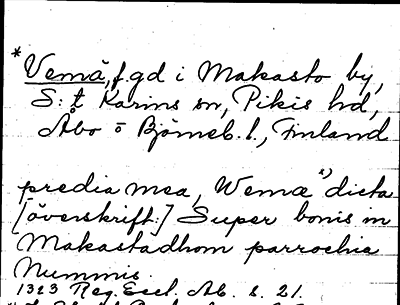 *Vemä, f.gd i Makasto by,
S:t Karins sn, Pikis hd,
Åbo o Björneb. l., Finland
predia mea, Wemæ "dicta
[överskrift:] Super bonis in
Makastadhom parrochie
Nummis.
1323 Reg. Eccl. Ab. s. 21.